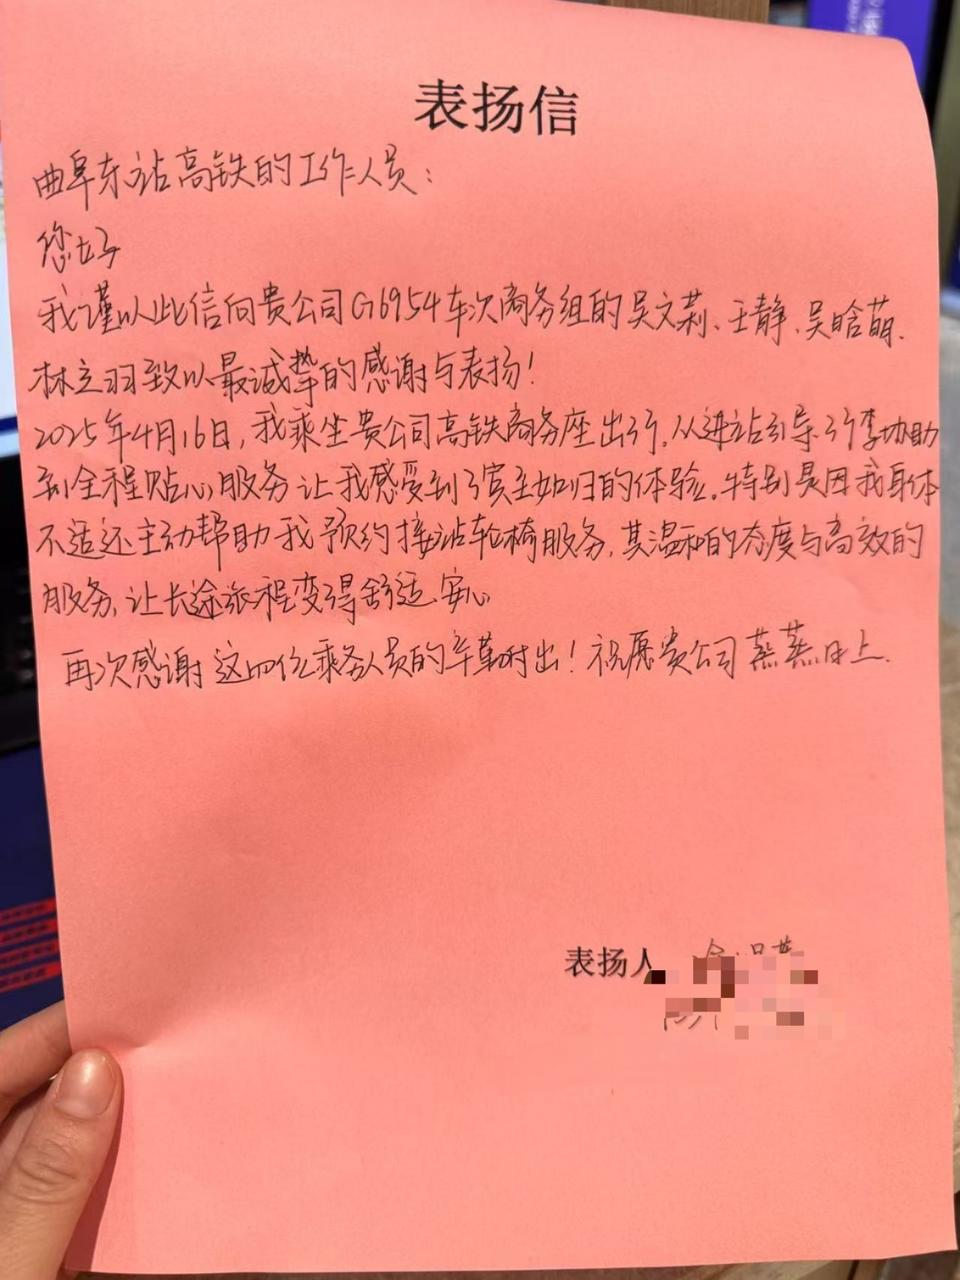 表扬信
曲阜东站高铁的工作人员：
您好
我谨以此信向贵公司G6954车次商务组的吴文莉、王静、吴晗萌、
林立羽致以最诚挚的感谢与表扬！
2025年4月16日，我乘坐贵公司高铁商务座出行，从进站引导、行李协助
到全程贴心服务让我感受到了宾至如归的体验。特别是因我身体
不适还主动帮助我预约接站轮椅服务，其温和的态度与高效的
服务，让长途旅程变得舒适、安心
再次感谢这四位乘务人员的辛勤付出！祝愿贵公司蒸蒸日上.
表扬人